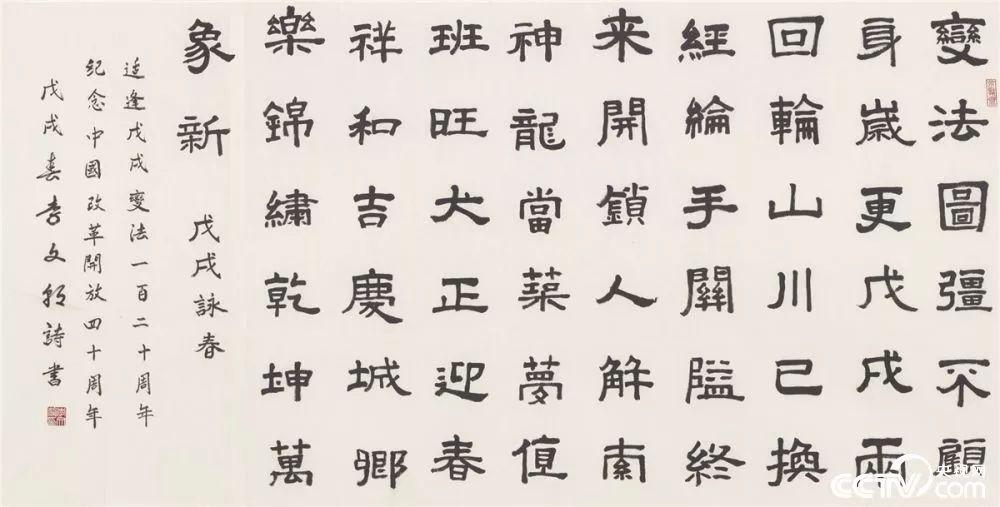 變法圖彊不顧
身歲更戊戌兩
回輪山川已換
經綸手關隘終
來開鎖人解索
神龍當築夢值
班旺犬正迎春
祥和吉慶城鄉
樂錦繡乾坤萬
象新 戊戌詠春
适逢戊戌變法一百二十周年
紀念中國改革開放四十周年
戊戌春李文朝詩書
央視網
CCTV.com